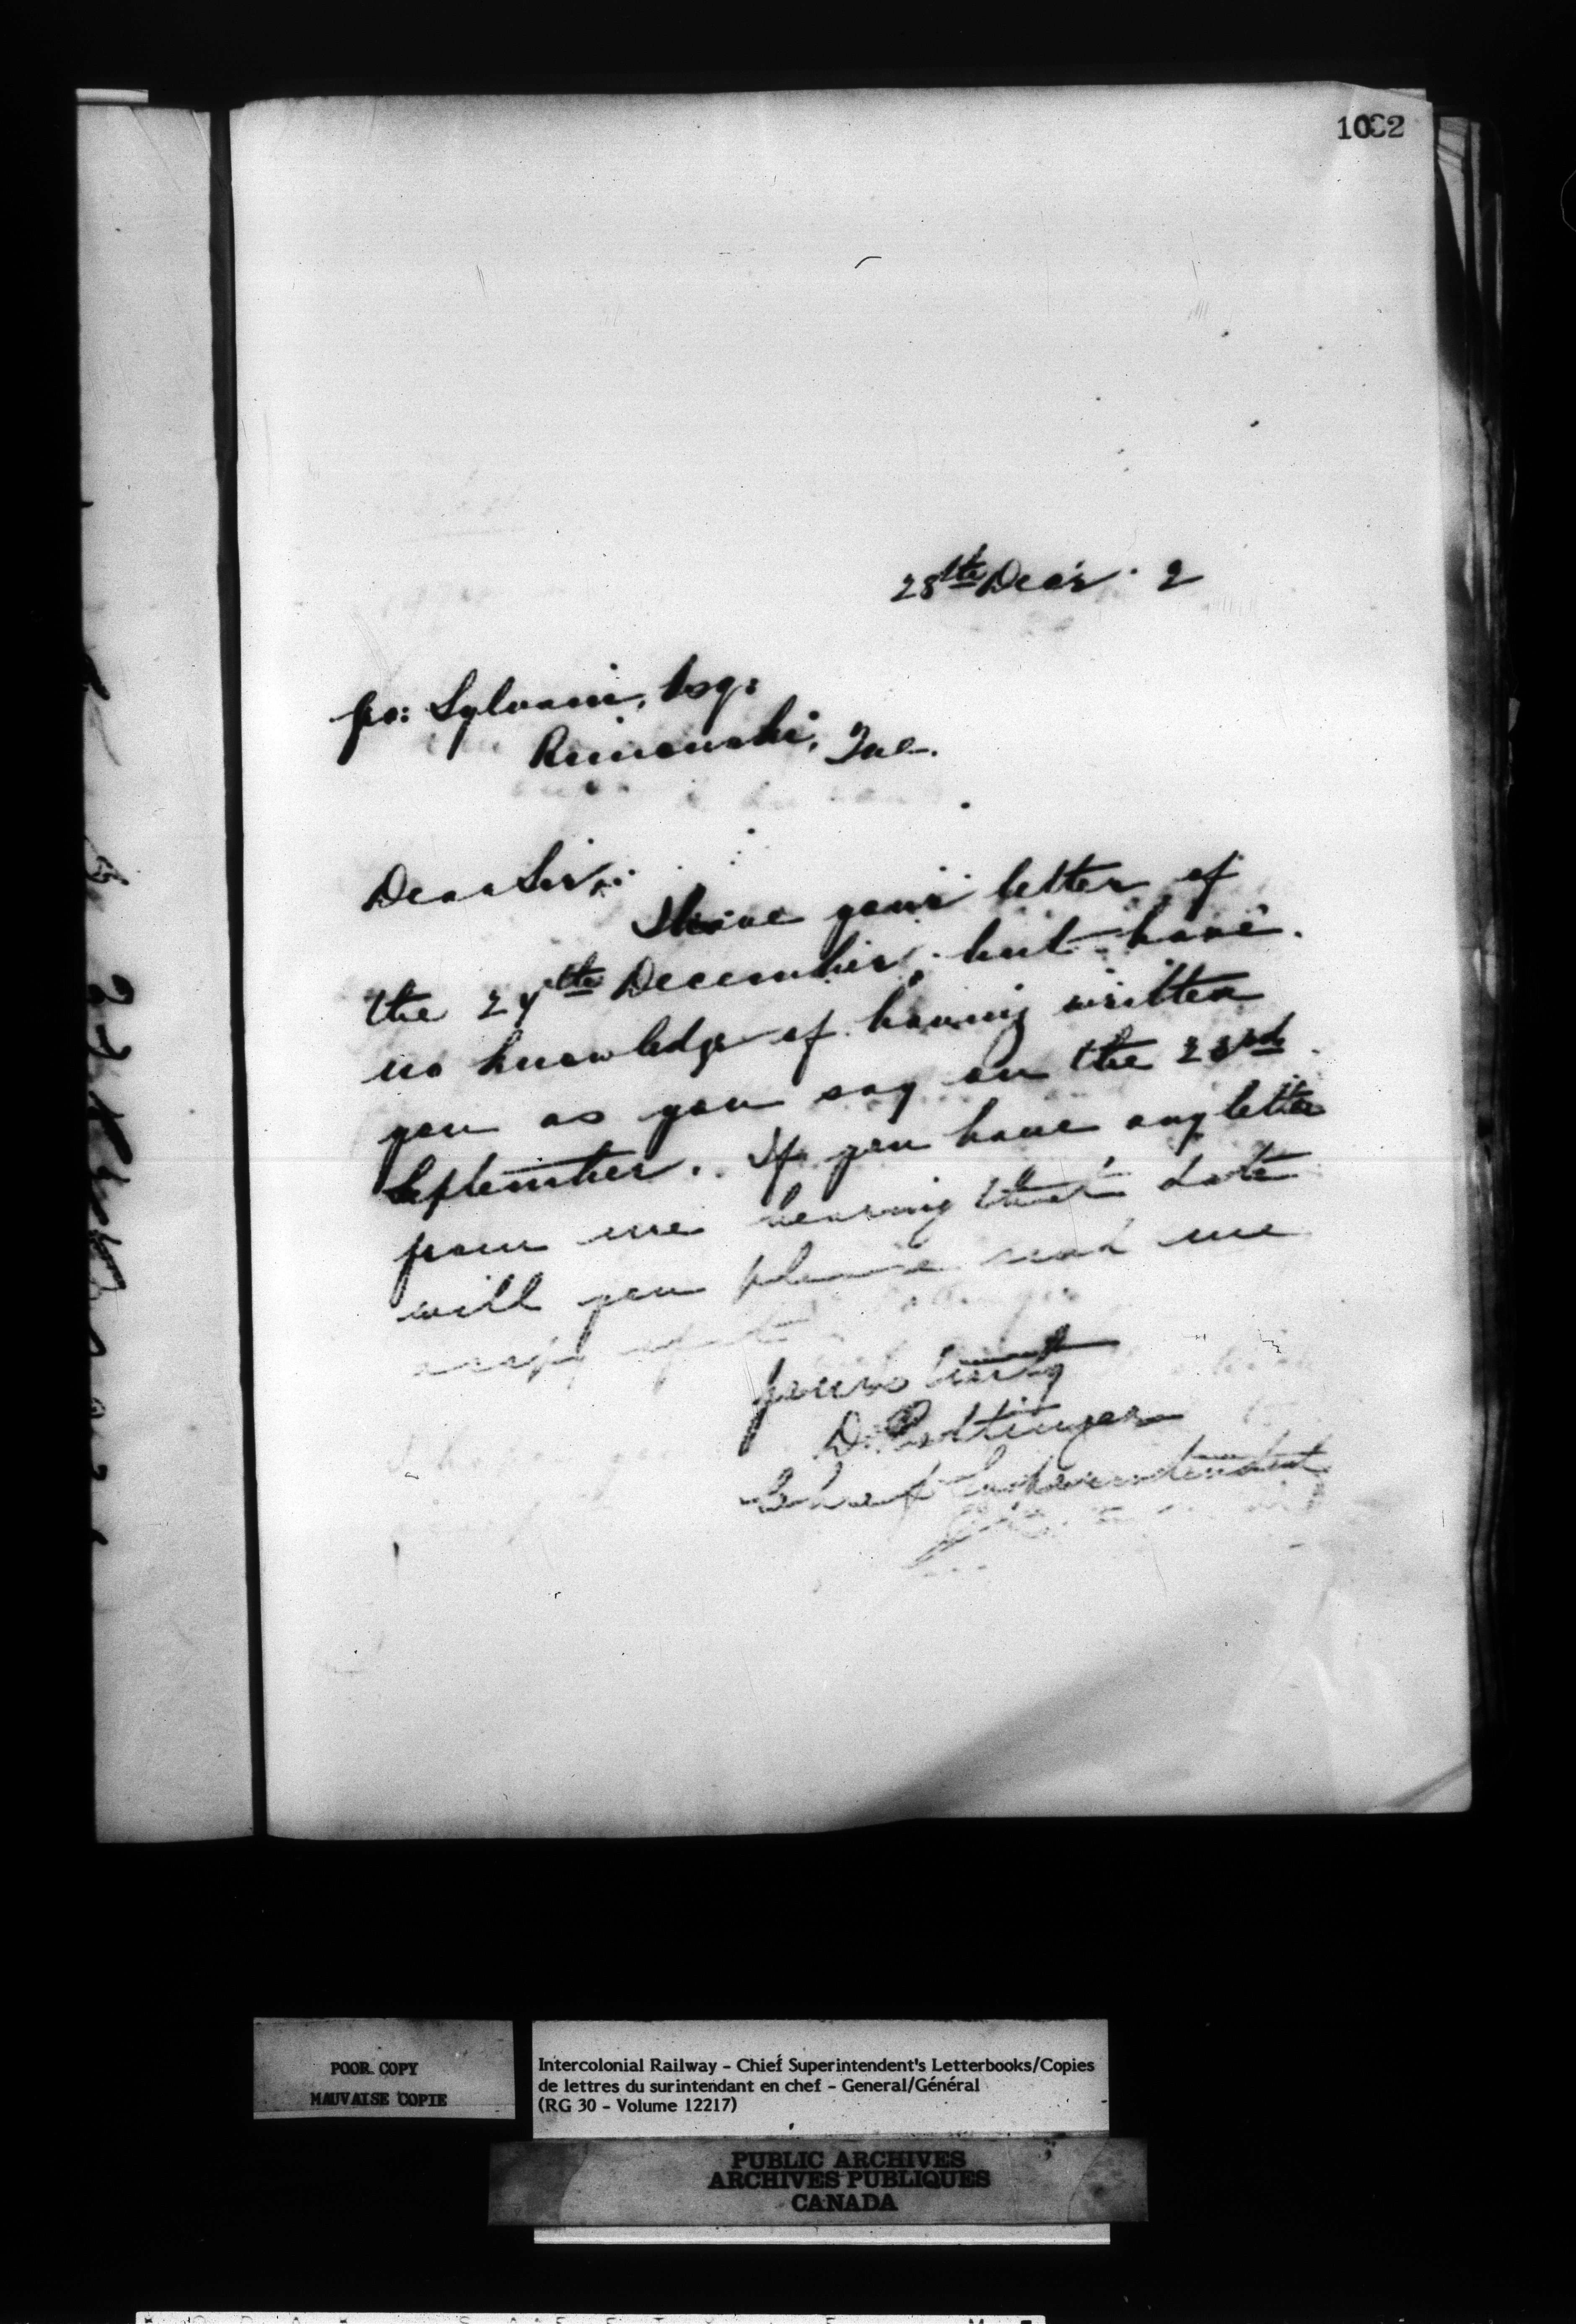 28th Decr. 2
Geo: Sylvain, Esq:
Rimouski, Que.
Dear Sir,
I have your letter of
the 24th December, but have
no knowledge of having written
you as you say on the 23rd
September. If you have any letter
from me bearing that date
will you please send me
a copy of it
Yours truly
D. Pottinger
Chief Superintendent
POOR COPY
MAUVAISE COPIE
Intercolonial Railway - Chief Superintendent's Letterbooks/Copies
de lettres du surintendant en chef - General/Général
(RG 30 - Volume 12217)
PUBLIC ARCHIVES
ARCHIVES PUBLIQUES
CANADA